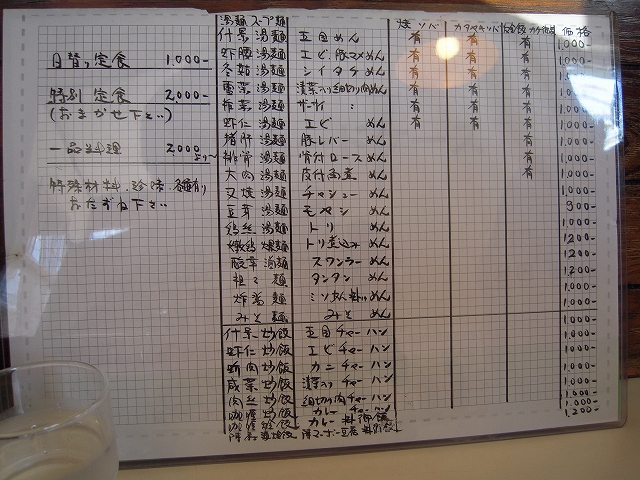 日替り定食 1,000-
特別定食 2,000-
(おまかせ下さい)
一品料理 2,000より〜
特殊材料、珍味、各種有り
おたずね下さい
湯麺スープ麺 焼ソバ 価格
什景湯麺 五目めん 有 有 有 1,000-
蝦腰湯麺 エビ、豚マメめん 有 有 有 1,000-
冬菇湯麺 シイタケめん 有 有 有 1,000-
雪菜湯麺 漬菜入り細切り肉めん 有 有 有 1,000-
搾菜湯麺 ザーサイ 〃 有 有 有 1,000-
蝦仁湯麺 エビめん 有 有 有 1,000-
猪肝湯麺 豚レバーめん 有 1,000-
排骨湯麺 骨付ロースめん 有 1,000-
大肉湯麺 皮付角煮めん 有 1,000-
叉焼湯麺 チャシューめん 1,000-
豆芽湯麺 モヤシめん 900-
鶏絲湯麺 トリめん 1,000-
燉鶏煨麺 トリ煮込みめん 1,200-
酸辛湯麺 スワンラーめん 1,200-
担々麺 タンタンめん 1,200-
炸醤麺 ミソめん 1,000-
みそ麺 みそめん 1,000-
什景炒飯 五目チャーハン 1,000-
蝦仁炒飯 エビチャーハン 1,000-
蟹肉炒飯 カニチャーハン 1,000-
咸菜炒飯 漬菜入りチャーハン 1,000-
肉絲炒飯 細切り肉チャーハン 1,000-
咖喱炒飯 カレーチャーハン 1,000-
咖喱烩飯 カレー料理飯 1,000-
マーボー豆腐 1,200-